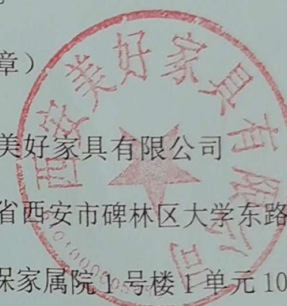 章）
美好家具有限公司
省西安市碑林区大学东路
保家属院1号楼1单元10
西安美好家具有限公司